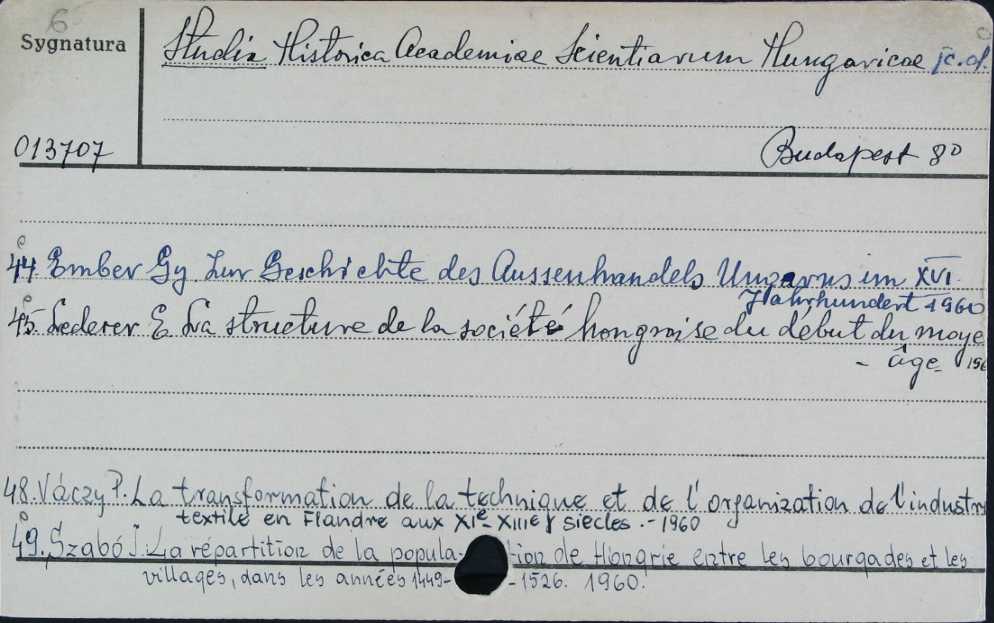 6
Sygnatura
Studia Historica Academiae Scientiarum Hungaricae c.d.
013707
Budapest 80
44. Ember Gy Zur Geschichte des Aussenhandels Ungarns im XVI.
Jahrhundert 1960
45. Lederer E La structure de la société hongroise du début du moye
- âge 196
48. Váczy P. La transformation de la technique et de l'organization de l'industri
textile en Flandre aux XIe XIIIe siècles. - 1960
49. Szabó I. La répartition de la popula- tion de Hongrie entre les bourgades et les
villages, dans les années 1449- -1526. 1960.